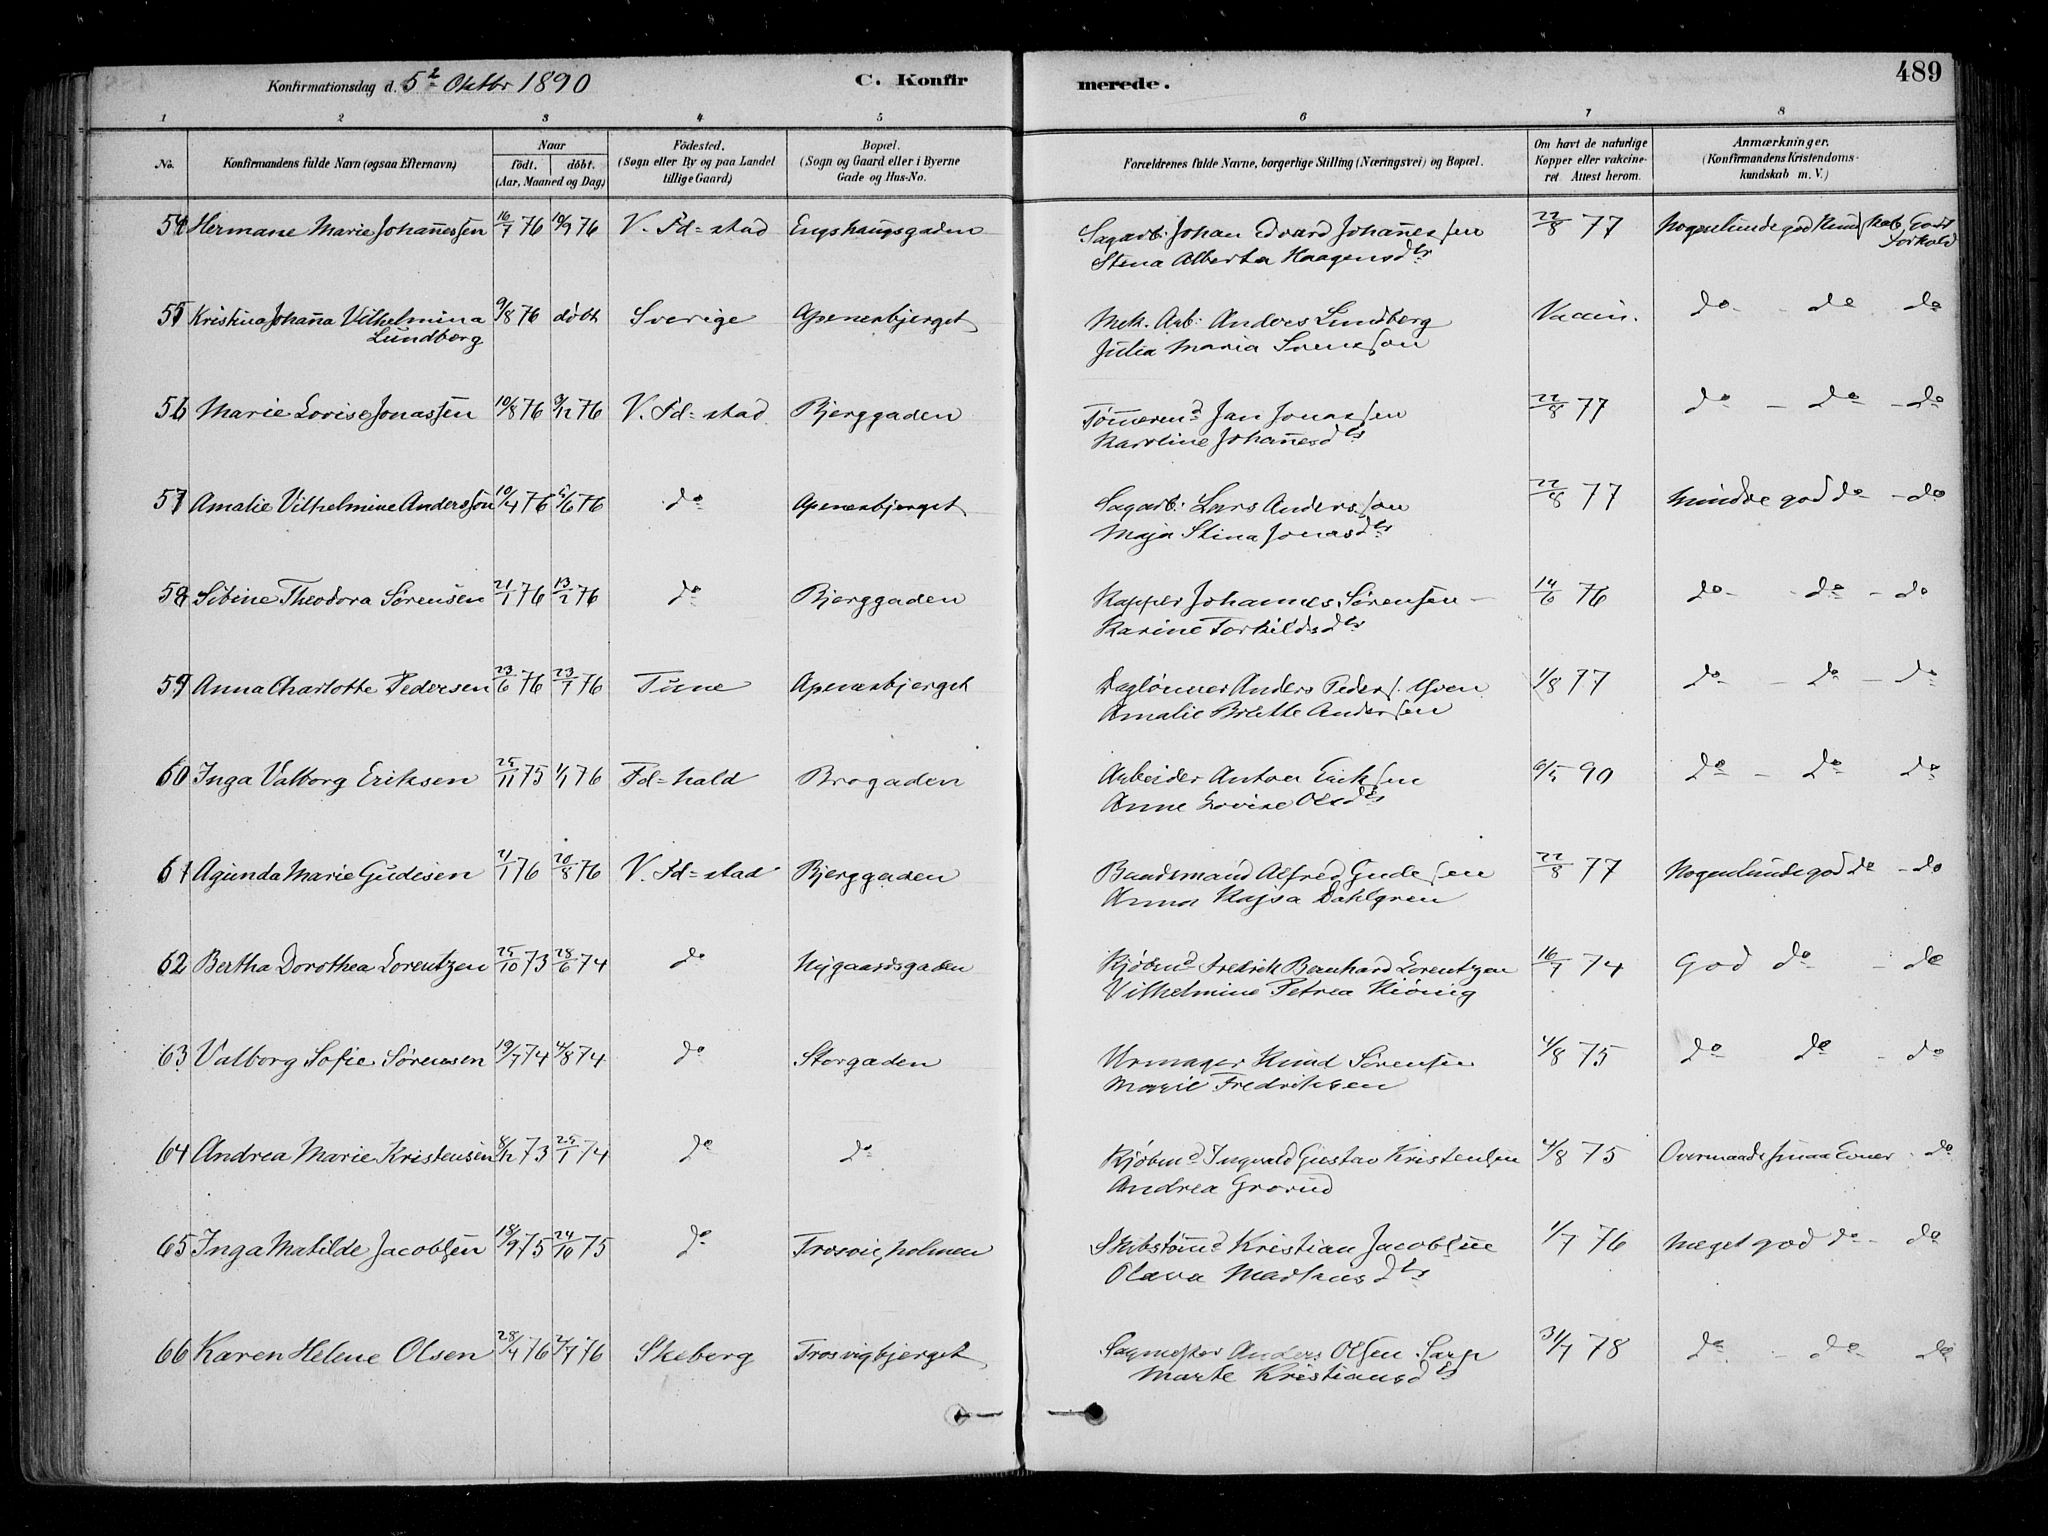 Konfirmationsdag d. 5te Oktbr 1890 C. Konfirmerede. 489
1 2 3 4 5 6 7 8
No. Konfirmandens fulde Navn (ogsaa Efternavn) Naar født. døbt. (Aar, Maaned og Dag) Fødested. (Sogn eller By og paa Landet tillige Gaard) Bopæl. (Sogn og Gaard eller i Byerne Gade og Hus-No. Forældrenes fulde Navne, borgerlige Stilling (Næringsvei) og Bopæl. Om havt de naturlige Kopper eller vakcineret. Attest herom. Anmærkninger. (Konfirmandens Kristendomskundskab m. V.)
54 Hermane Marie Johannessen 16/7 76 10/9 76 V. Fd=stad Engshaugsgaden Sagarb: Johan Edvard Johannessen 22/8 77 Nogenlunde god Kundskab Godt Forhold
Stina Alberta Haagensdtr
55 Kristina Johanna Vilhelmina 9/8 76 døbt Sverige Apenesbjerget Mek. Arb: Anders Lundberg Vaccin. do - do do
Lundberg Julia Maria Svensson
56 Marie Lovise Jonassen 10/8 76 9/12 76 V. Fd=stad Bjerggaden Tømmermd Jan Jonassen 22/8 77 do - do - do
Karoline Johannesdtr
57 Amalie Vilhelmine Andersson 10/4 76 5/6 76 do Apenesbjerget Sagarb: Lars Andersson 22/8 77 Mindre god do - do
Maja Stina Jonasdtr
58 Sibine Theodora Sørensen 21/1 76 13/2 76 do Bjerggaden Kapper Johannes Sørensen - 14/6 76 do - do - do
Karine Torkildsdtr
59 Anna Charlotte Pedersen 23/6 76 23/7 76 Tune Apenesbjerget Daglønner Anders Peders. Hven 1/8 77 do - do - do
Amalie Britte Andersen
60 Inga Valborg Eriksen 25/11 75 1/1 76 Fd=hald Brogaden Arbeider Anton Eriksen 6/5 90 do - do do
Anne Lovise Olsdtr
61 Agunda Marie Gudesen 21/1 76 20/8 76 V. Fd=stad Bjerggaden Baadsmand Alfred Gudesen 22/8 77 Nogenlunde god do - do
Anna Kajsa Dahlgren
62 Bertha Dorothea Lorentzen 25/10 73 28/6 74 do Nygaardsgaden Kjøbmd Fredrik Bernhard Lorentzen 16/7 74 God do - do
Vilhelmine Petrea Kiønig
63 Valborg Sofie Sørensen 19/7 74 4/8 74 do Storgaden Urmager Knud Sørensen 4/8 75 do do - do
Marie Fredriksen
64 Andrea Marie Kristensen 8/12 73 25/1 74 do do Kjøbmd Ingvald Gustav Kristensen 4/8 75 Overmaade smaa Evner - do
Andrea Grorud
65 Inga Matilde Jacobsen 18/9 75 24/10 75 do Trosvigholmen Skibstømmd Kristian Jacobsen 1/7 76 Meget god do - do
Olava Mathisdtr
66 Karen Helene Olsen 28/4 76 2/7 76 Skeberg Trosvigbjerget Sagmester Anders Olsen Sarp 31/7 78 do do - do
Marte Kristiansdtr